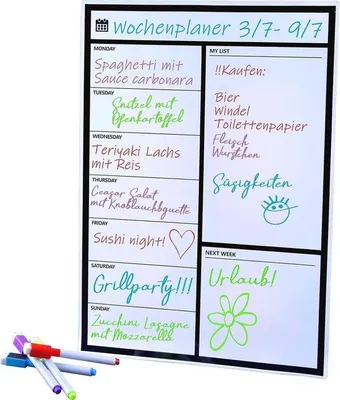 Wochenplaner 3/7- 9/7
MONDAY
Spaghetti mit
Sauce carbonara
TUESDAY
Snitzel mit
Ofenkartoffel
WEDNESDAY
Teriyaki Lachs
mit Reis
THURSDAY
Ceasar Salat
mit Knoblauchbguette
FRIDAY
Sushi night!
SATURDAY
Grillparty!!!
SUNDAY
Zucchini Lasagne
mit Mozzarella
MY LIST
!!Kaufen:
Bier
Windel
Toilettenpapier
Fleisch
Würstchen
Süsigkeiten
NEXT WEEK
Urlaub!